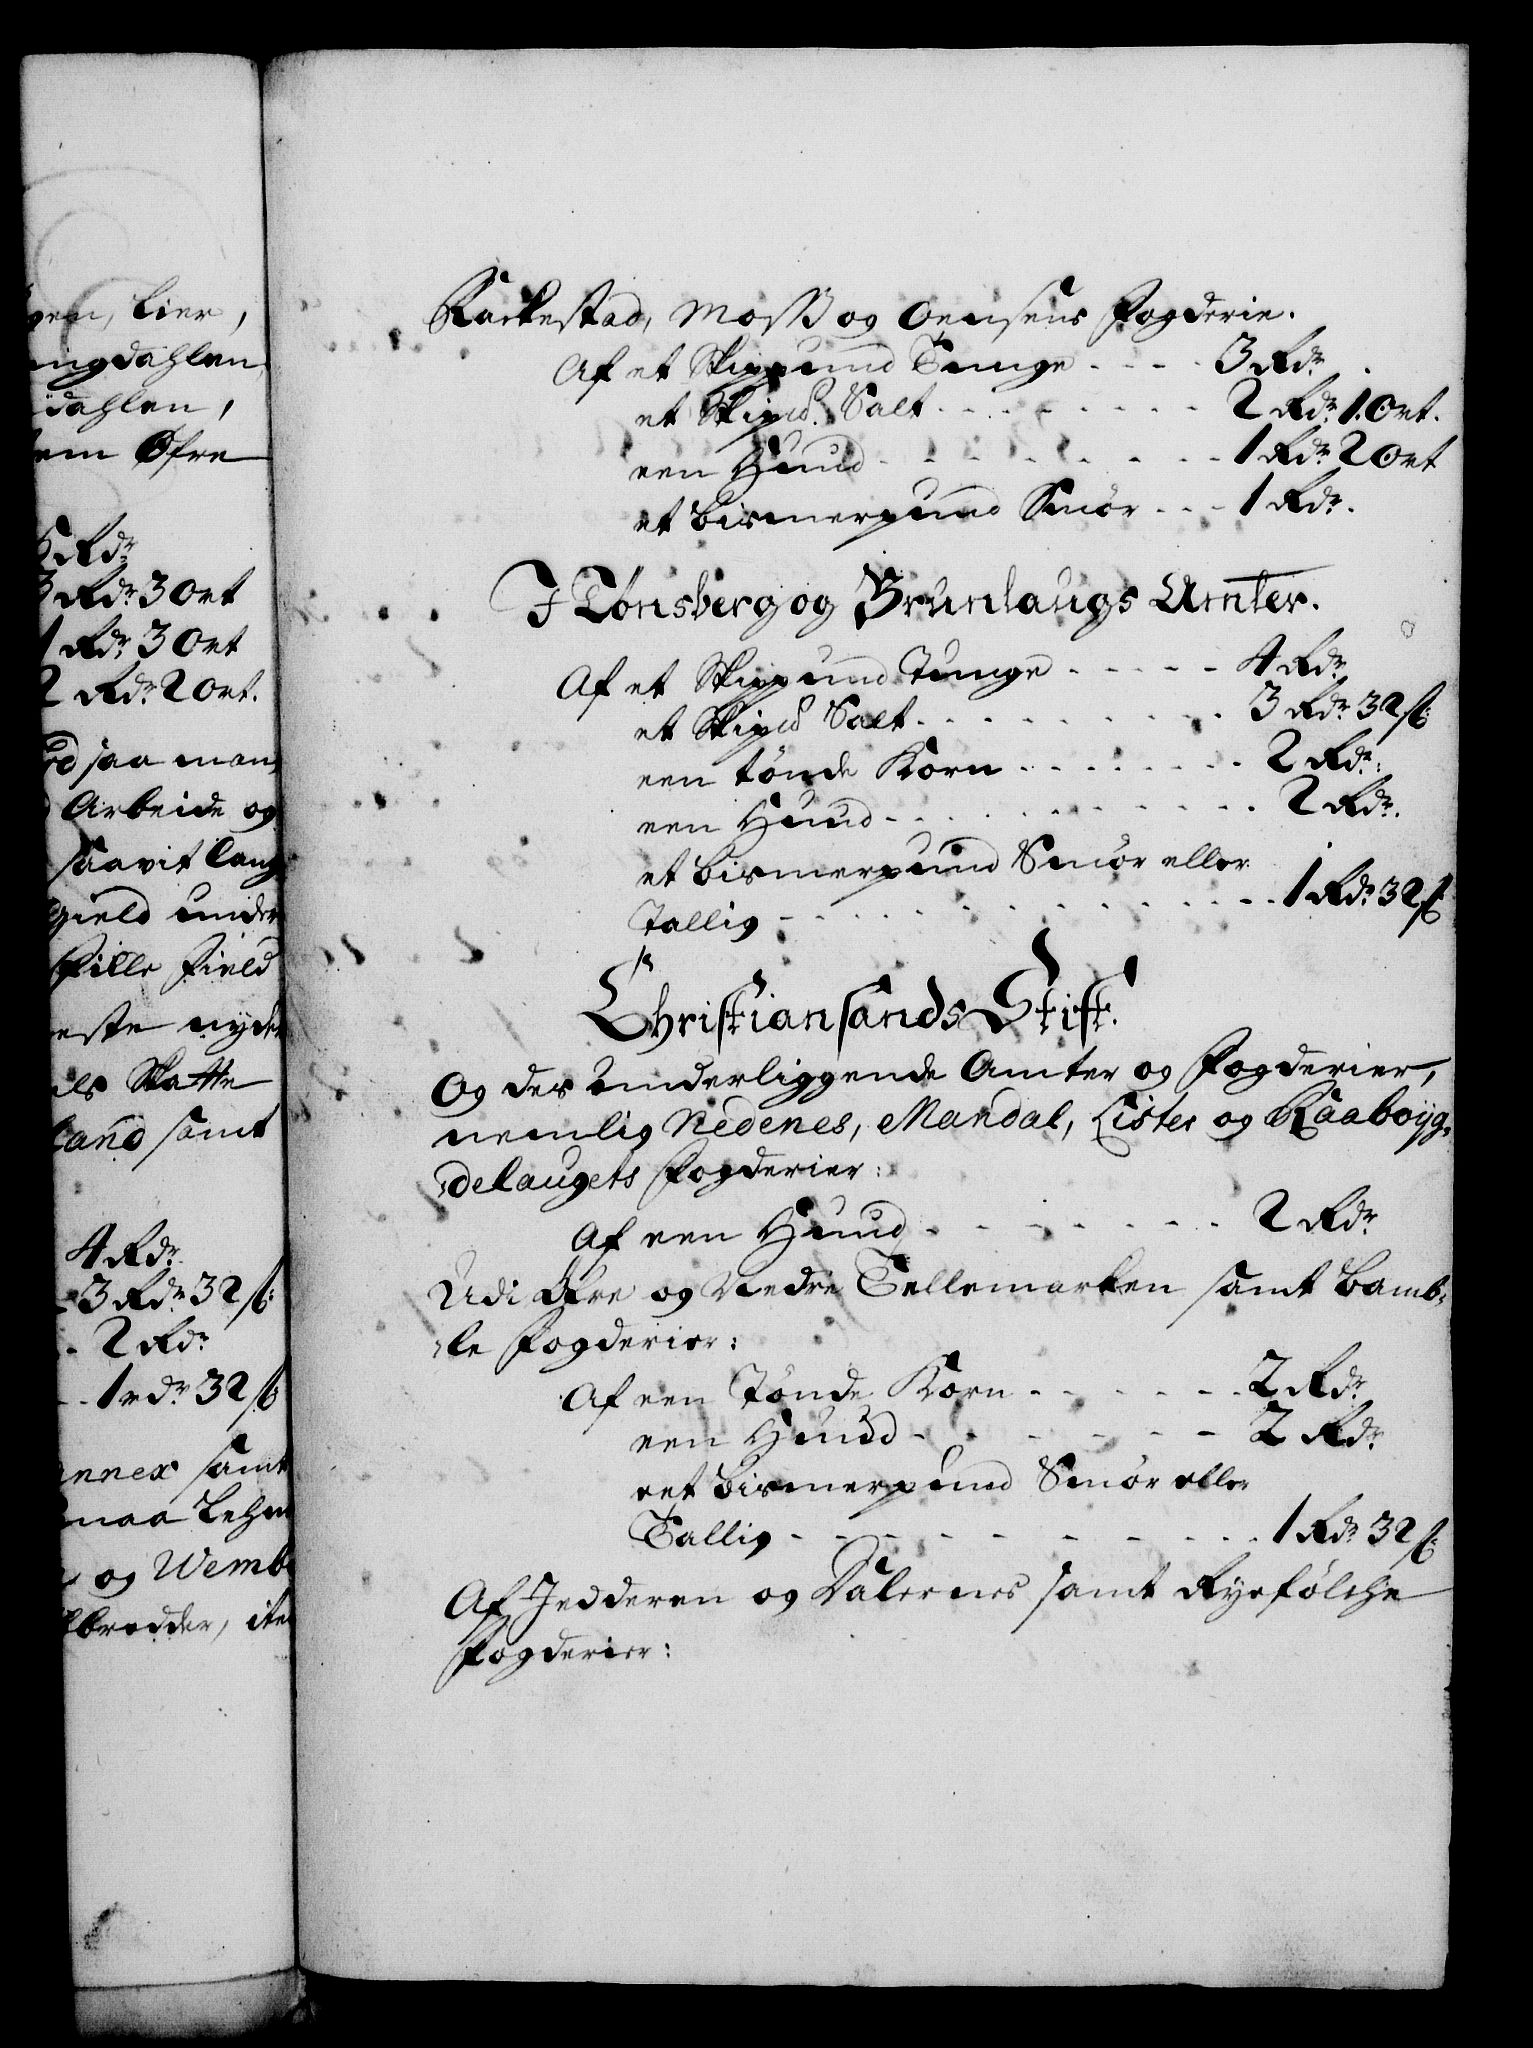 gen, Lier,
ingdahlen,
dahlen,
em Øfre
Rdr
3 Rdr 3 Ort
1 Rdr 3 Ort
2 Rdr 2 Ort.
saa man
Arbeide og
saavit lang
gield under
Fille Field
este nyde
als Skatte
land samt
4 Rdr
3 Rdr 32 ß:
- 2 Rdr
- - 1 rdr 32 ß
annex samt
maa Lehn
og Wemb
brodder, ite
Rackestad, Moss og Oensøens Fogderie.
Af et Skippund Tunge - - - - 3 Rdr.
et Skipd. Salt - - - - - - - - 2 Rdr. 1. Ort.
een Huud - - - - - - - - 1 Rdr. 2 Ort
et bismerpund Smør - - - 1 Rdr.
I Tønsberg og Brunlaugs Amter.
Af et Skippund Tunge - - - - - 4 Rdr.
et Skipd Salt - - - - - - - - 3 Rdr. 32 ß:
een tønde Korn - - - - - - - 2 Rdr.
een Huud - - - - - - - - - - 2 Rdr.
et bismerpund Smør eller
Tallig - - - - - - - - - - - - 1 Rdr. 32 ß
Christiansands Stift.
Og des Underliggende Amter og Fogderier,
nemlig Nedenes, Mandal, Lister og Raaboÿg-
-delaugets Fogderier:
Af een Huud - - - - - - - 2 Rdr.
Udi Øfre og Nedre Tellemarken samt Bamb-
-le Fogderier:
Af een Tønde Korn - - - - - - 2 Rdr.
een Huud - - - - - - - 2 Rdr.
eet bismerpund Smør eller
Tallig - - - - - - - - - - 1 Rdr. 32 ß.
Af Jedderen og Dalernes samt Ryefølche
Fogderier: